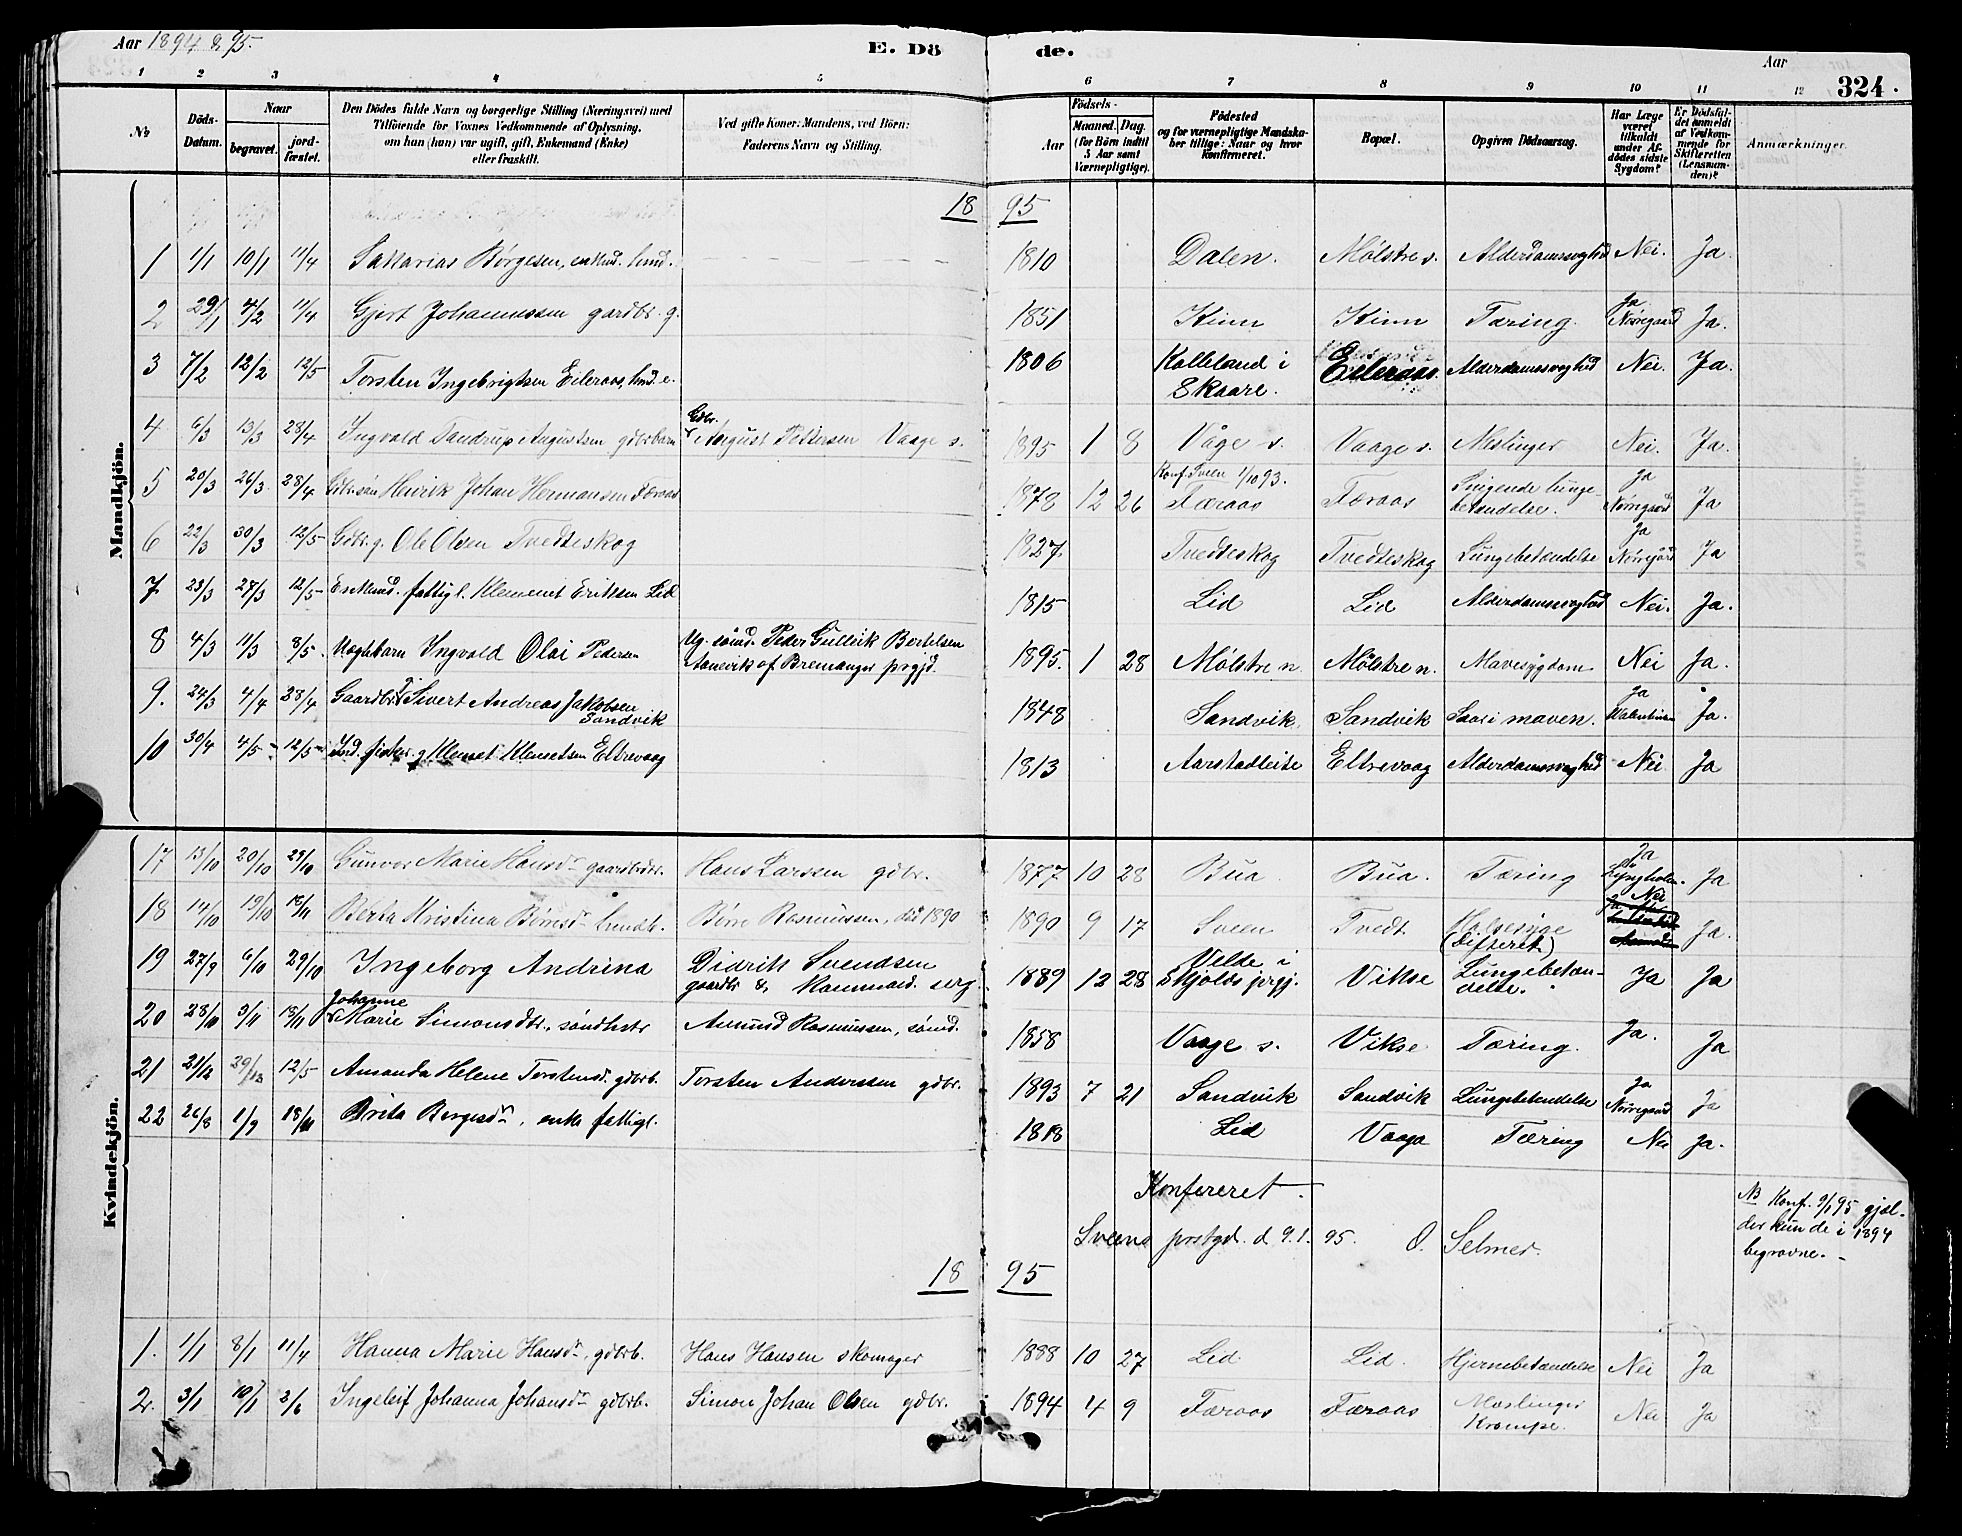 Aar 1894 & 95.
E. Dö
de.
Aar
324.
1 2 3 4 5 6 7 8 9 10 11 12
No
Döds-Datum.
Naar
begravet.
jord-fæstet.
Den Dödes fulde Navn og borgerlige Stilling (Næringsvei) med
Tilföiende for Voxnes Vedkommende af Oplysning,
om han (hun) var ugift, gift, Enkemand (Enke)
eller fraskilt.
Ved gifte Koner: Mandens, ved Börn:
Faderens Navn og Stilling.
Födsels-
Aar
Maaned. Dag.
(for Börn indtil
5 Aar samt
Værnepligtige).
Födested
og for værnepligtige Mandska-
ber tillige: Naar og hvor
Konfirmeret.
Bopæl.
Opgiven Dödsaarsag.
Har Læge
været
tilkaldt
under Af-
dödes sidste
Sygdom?
Er Dödsfal-
det anmeldt
af Vedkom-
mende for
Skifteretten
(Lensman-
den)?
Anmærkninger.
Mandkjön.
18 95
1 1/1 10/1 11/4 Sakarias Børgesen, enkmd. hmd. 1810 Dalen. Mølstre s. Alderdomssvaghed Nei. Ja.
2 29/1 4/2 11/4 Gjert Johannessen gardbr. g. 1851 Kinn Kinn Tæring. Ja Nørregaard Ja.
3 7/2 12/2 12/5 Torsten Ingebrigtsen Eileraas, hmd. e. 1806 Kalleland i Skaare. Eileraas. Alderdomssvaghed Nei. Ja.
4 6/3 13/3 28/4 Ingvald Sandrup Augustsen gdbrbarn Gdbr. August Pettersen Vaage s. 1895 1 8 Våge s. Vaage s. Meslinger Nei. Ja.
5 20/3 26/3 28/4 Gdbrsøn Henrik Johan Hermansen Færaas 1878 12 26 Konf. Sveen 1/10 93. Færaas Færaas Snigende lunge-betændelse. Ja Nørregaard Ja
6 22/3 30/3 12/5 Gdbr. g. Ole Olsen Tvedteskog 1827 Tvedteskog Tvedteskog Lungebetændelse Ja Nørregård Ja
7 23/3 27/3 12/5 Enkmd. fattigl. Klemmet Eriksen Lid 1815 Lid Lid Alderdomssvaghed Nei. Ja.
8 4/3 11/3 8/5 Uægtebarn Ingvald Olai Pedersen Ug. sømd. Peder Gullvik Bertelsen
Aanevik af Bremanger prgjd. 1895. 1 28 Mølstre n. Mølstre n. Mavesygdom Nei Ja.
9. 24/3 4/4 28/4 Gaardbr. Sivert Andreas Jakobsen Sandvik 1848 Sandvik. Sandvik Saar i maven. Ja Valentinsen Ja.
10 30/4 4/5 12/5 Ind. fisker g. Klemet Klemetsen Eltrevaag 1813 Aarstadleite Eltrevaag Alderdomssvaghed Nei Ja
Kvindekjön.
17 13/10 20/10 29/10 Gunvor Marie Hansdr. gaardbrdtr. Hans Larssen gdbr. 1877 10 28 Bua Bua. Tæring Ja Lyngholm. Ja
18 14/10 19/10 18/11 Berta Kristina Børresdr. hmdb. Børre Rasmussen, død 1890 1890 9 17 Sveen Tvedt Halssyge (Difterit) Nei Ja.
19 27/9 6/10 29/10 Ingeborg Andrina Didrik Svendsen
gaardbr &. serg. 1889 12 28 Velde i Skjolds prgj. Vikse Lungebetæn-delse. Ja Ja
20 28/10 3/11 18/11 Johanne Marie Simonsdtr., sømdhstr Amund Rasmussen, sømd. 1858 Vaage s. Vikse Tæring. Ja. Ja
21 21/12 29/12 12/5 Amanda Helene Torstensd. gdbrb. Torsten Anderssen gdbr. 1893 7 21 Sandvik Sandvik Lungebetændelse Ja Nørregaard Ja
22 26/8 1/9 18/11 Brita Bergesdr., enke fattigl. 1818 Lid Vaaga Tæring Nei Ja.
Konfereret.
Sveens prestgd. d. 9.1. 95. O. Selmer.
NB Konf. 9/1 95 gjæl-
der kun de i 1894
begravne.
18 95
1. 1/1 8/1 11/4 Hanna Marie Hansdr., gdbrb. Hans Hansen skomager 1888 10 27 Lid Lid. Hjernebetændelse Nei Ja
2. 3/1 10/1 2/6 Ingeleif Johanna Johansdr. gdbrb. Simon Johan Olsen gdbr. 1894 4 9 Færaas Færaas Mæslinger Krampe. Nei Ja